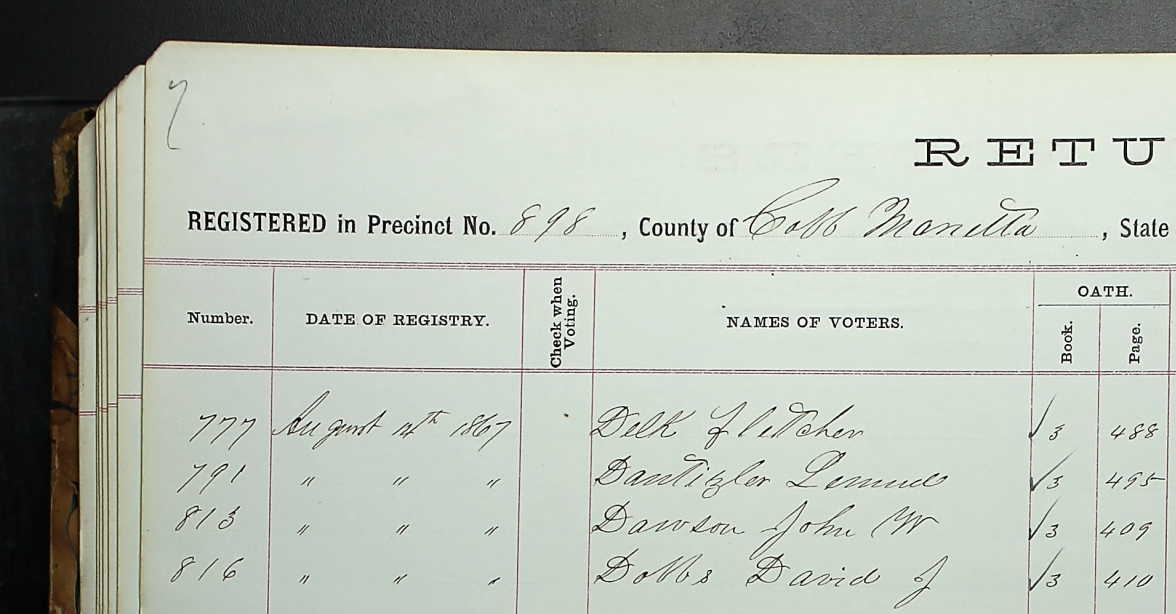 7
RETU
REGISTERED in Precinct No. 898, County of Cobb Marietta, State
Number. DATE OF REGISTRY. Check when Voting. NAMES OF VOTERS. OATH. Book. Page.
777 August 14th 1867 Delk Fletcher √3 488
791 " " " Dantizler Lemuel √3 495
813 " " " Dawson John W √3 409
816 " " " Dobbs David J √3 410